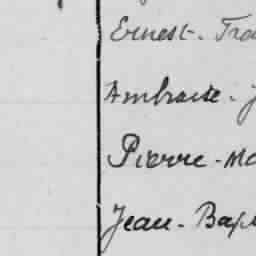 Ernest - Fra
Ambroise - J
Pierre - Ma
Jean - Bap